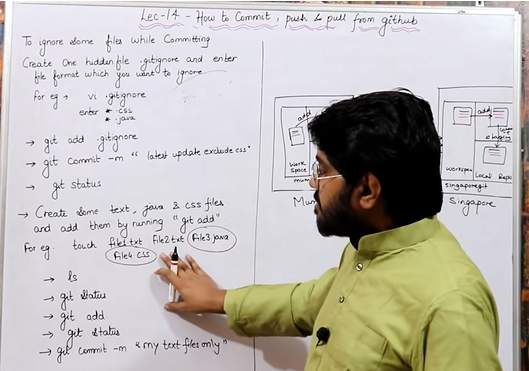 Lec-14 - How to Commit, push & pull from github
To ignore some files while Committing
Create One hidden file .gitignore and enter
file format which you want to ignore
For eg → vi .gitignore
enter *.css
*.java
→ git add .gitignore
→ git commit -m "latest update exclude css"
→ git status
→ Create some text, java & css files
and add them by running "git add"
For eg. touch file1.txt file2.txt file3.java
file4.css
→ ls
→ git status
→ git add
→ git status
→ git commit -m "my text files only"
add
Work
Space
mum
Mu
add
Workspace
Local Repo
singaporegit
Singapore